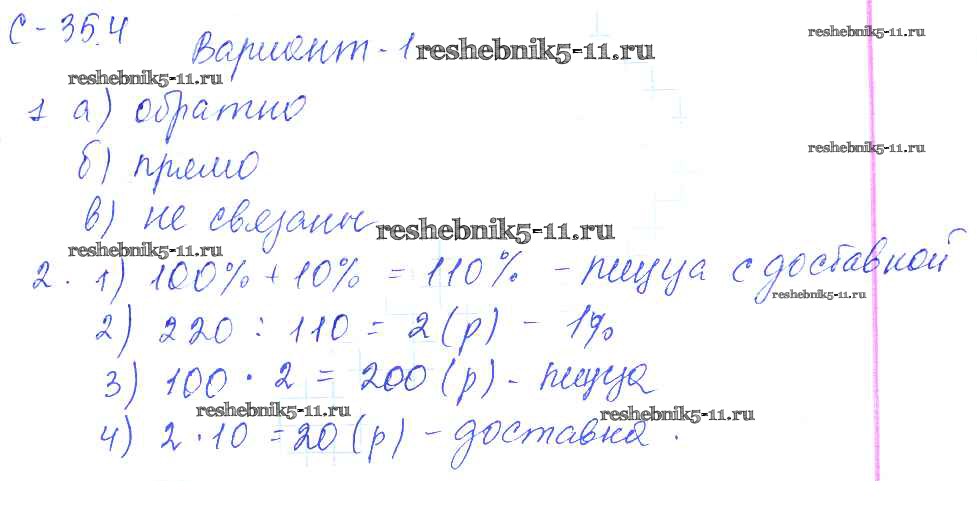 С-35.4
reshebnik5-11.ru
Вариант-1 reshebnik5-11.ru
reshebnik5-11.ru
1 а) обратно
б) прямо
reshebnik5-11.ru
в) не связаны reshebnik5-11.ru
reshebnik5-11.ru
2. 1) 100% + 10% = 110% - пицца с доставкой
reshebnik5-11.ru
2) 220 : 110 = 2 (р) - 1%
3) 100 · 2 = 200 (р) - пицца
reshebnik5-11.ru reshebnik5-11.ru
4) 2 · 10 = 20 (р) - доставка.